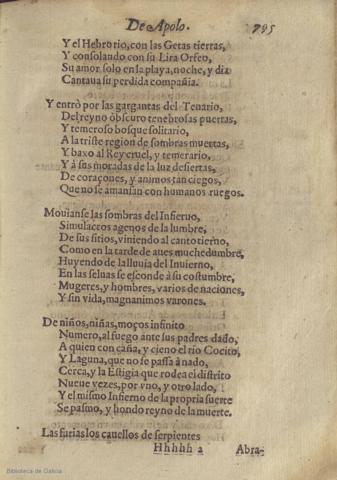 De Apolo. 795
Y el Hebro rio, con las Getas tierras,
Y consolando con su Lira Orfeo,
Su amor solo en la playa, noche, y dia
Cantaua su perdida compañia.
Y entrò por las gargantas del Tenario,
Del reyno òbscuro tenebrosas puertas,
Y temeroso bosque solitario,
A la triste region de sombras muertas,
Y baxo al Rey cruel, y temerario,
Y à sus moradas de la luz desiertas,
De coraçones, y animos tan ciegos,
Que no se amansan con humanos ruegos.
Mouianse las sombras del Infieruo,
Simulacros agenos de la lumbre,
De sus sitios, viniendo al canto tierno,
Como en la tarde de aues muchedumbre,
Huyendo de la lluuia del Inuierno,
En las seluas se esconde à su costumbre,
Mugeres, y hombres, varios de naciones,
Y sin vida, magnanimos varones.
De niños, niñas, moços infinito
Numero, al fuego ante sus padres dado,
A quien con caña, y cieno el rio Cocito,
Y Laguna, que no se passa à nado,
Cerca, y la Estigia que rodea el distrito
Nueue vezes, por vno, y otro lado,
Y el mismo Infierno de la propria suerte
Se pasmo, y hondo reyno de la muerte.
Las furias los cauellos de serpientes
Hhhhh 2 Abra-
Biblioteca de Galicia